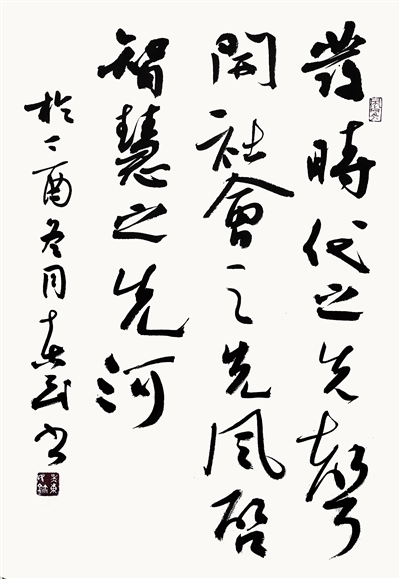 發時代之先聲
開社會之先風启
智慧之先河
於丁酉冬月書